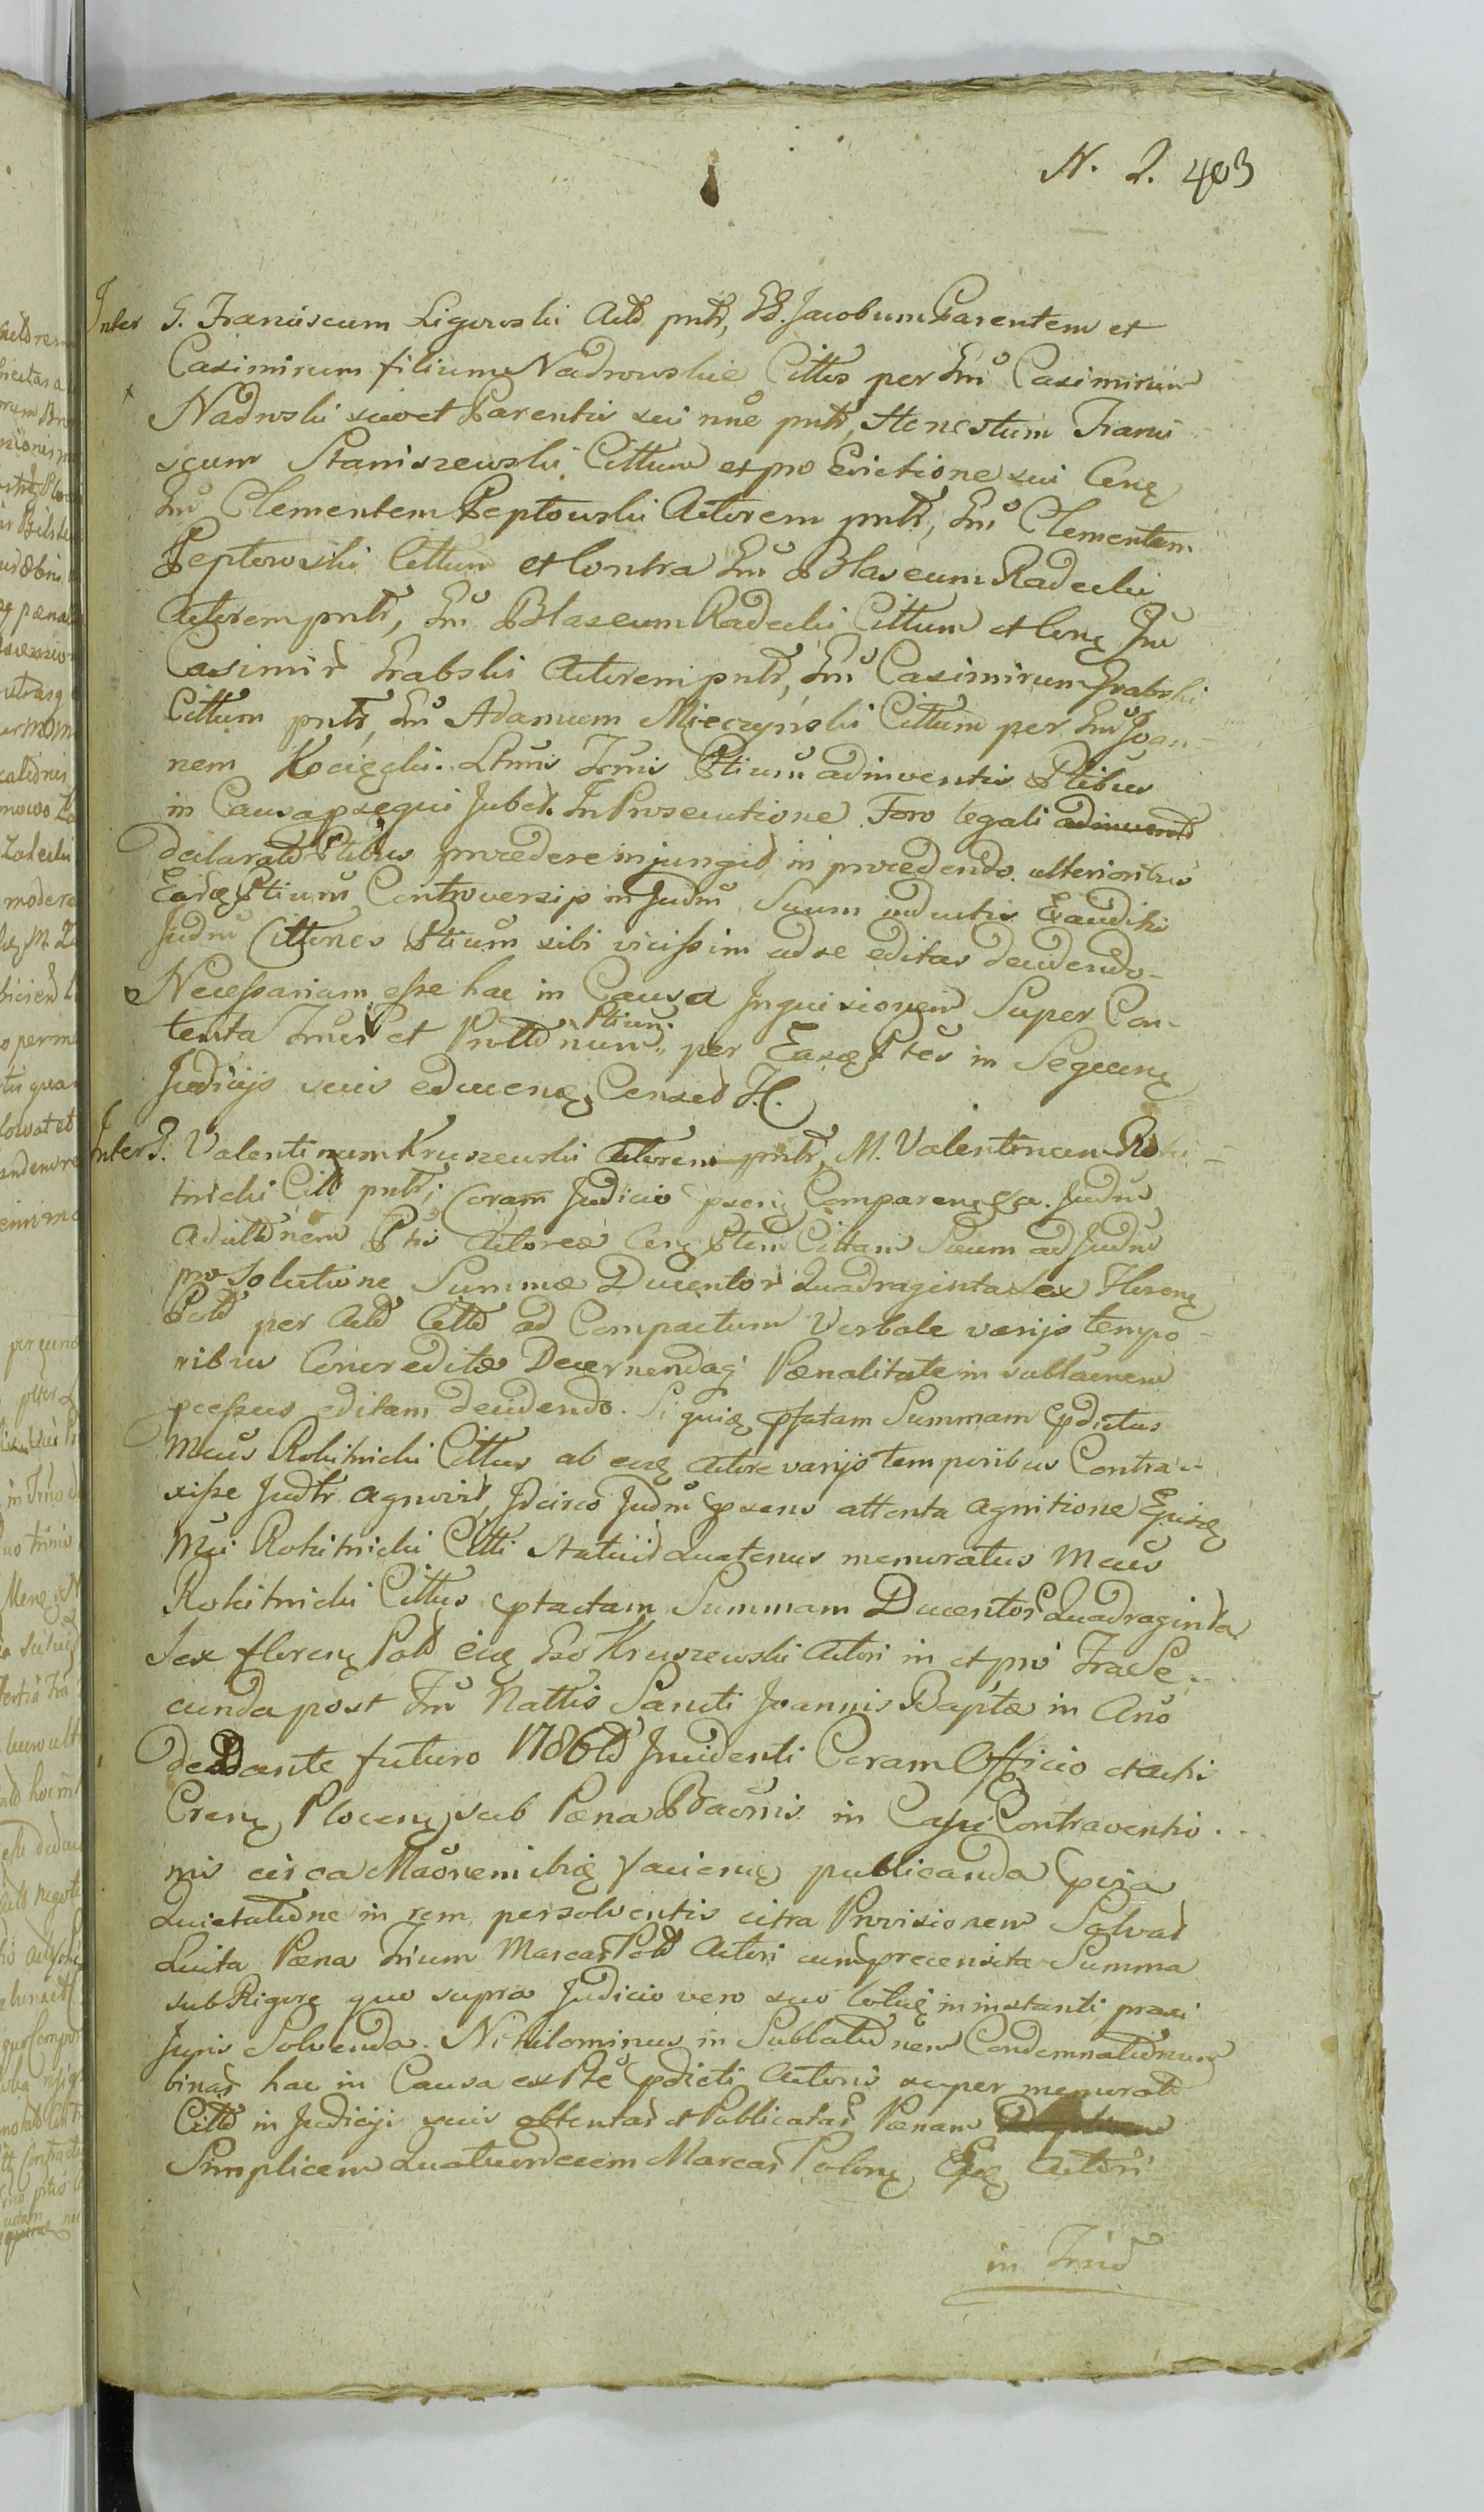 N. 2. 403
Inter G. Franciscum Ligowski Actō pntr, GG. Jacobum Parentem et
Casimirum filium Nadrowskie Cittos per Gnū Casimirum
Nadrvski suo et Parentis sui nne pntr, Honestum Franci
scum Staniszewski Cittum et pro Evictione sui Conq
Gnū Clementem Peptowski Actorem pntr, Gnū Clementem
Peptowski Cittum et Contra Gnū Blaseum Radecki
Actorem pntr, Gnū Blaseum Radecki Cittum et Conq Gnū
Casimir Grabski Actorem pntr, Gnū Casimirum Grabski
Cittum pntr, Gnū Adamum Mieczyński Cittum per Gnū Joan-
nem Kocięcki. Ltmis Trnis Ptium adinventis Ptibus
in Causa psequi Jubet. In Prosecutione Foro legali
declarato Ptibus procedere injungit, in procedendo ulterioribus
Earōe Ptium Controversijs in Judm Suum inductis Exauditis
Judm Cittnes Ptium sibi vicissim ad se editas decidendo-
Necessariam esse hac in Causa Inquisionem Super Con-
tenta Trnis et Prottnum Ptium per Easdē Ptes in Sequenq
Judicijs suis educenq Censet H.
Inter G. Valentinum Kruszewski Actorem pntr, M. Valentinum Roki-
tnicki Citt pntr; Coram Judicio psenq Comparenq. Judm
ad utnem Ptis Actorea Conq Ptem Cittam Suum ad Judm
pro Solutione Summæ Ducentor Quadraginta Sex Florenq
Polō per Actō Cittō ad Compactum Verbale varijs tempo-
ribus Concreditæ Decernendaq Pænalitate in sublaenem
pcessus editam decidendo. Si quiq pfatam Summam pdictus
Mcus Rokitnicki Cittus ab eoq Actore varijs temporibus Contra-
xisse Judtr agnovit, Idcirco Judm psens attenta agnitione Ejusq
Mci Rokitnicki Citti statuit Quatenus memoratus Mcus
Rokitnicki Cittus ptactam Summam Ducentor Quadraginta
Sex florenq Polō eiq Gso Kruszewski Actori in et pro Fra Se-
cunda post Fm Nattis Sancti Joannis Baptæ in Ano
deo dante futuro 1786tō Incidenti Coram Officio et actis
Crenq Plocenq sub Pæna Baonis in Casu Contraventio-
nis circa Maonem ibiq facienq publicanda pvia
Quietatione in rem persolventis citra Provisionem Solvat
Luita Pæna Trium Marcar Polō Actori cum precensita Summa
sub Rigore quo supra Judicio vero suo totiq in instanti praxi
Juris Solvenda. Nihilominus in Sublatōnem Condemnatōnum
binar hac in Causa ex Pte pdicti Actoris super memoratō
Cittō in Judicijs suis obtentar et Publicatar Pænam
Simplicem Quatuordecem Marcar Polonq Ejsq Actori
in Trnō